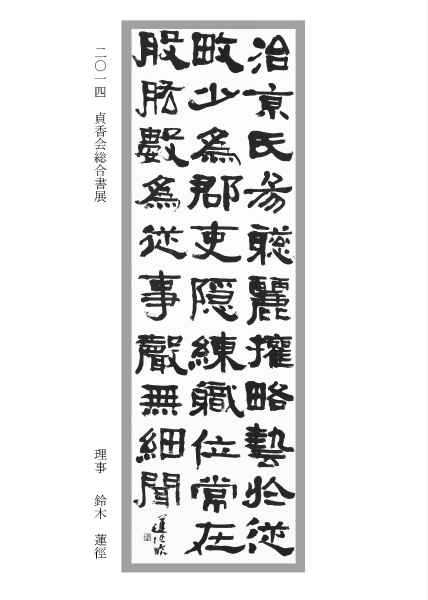 治京氏易聰麗權略藝於從
畋少為郡吏隱練職位常在
股肱數為從事聲無細聞
二〇一四　貞香会総合書展
理事　鈴木　蓮徑